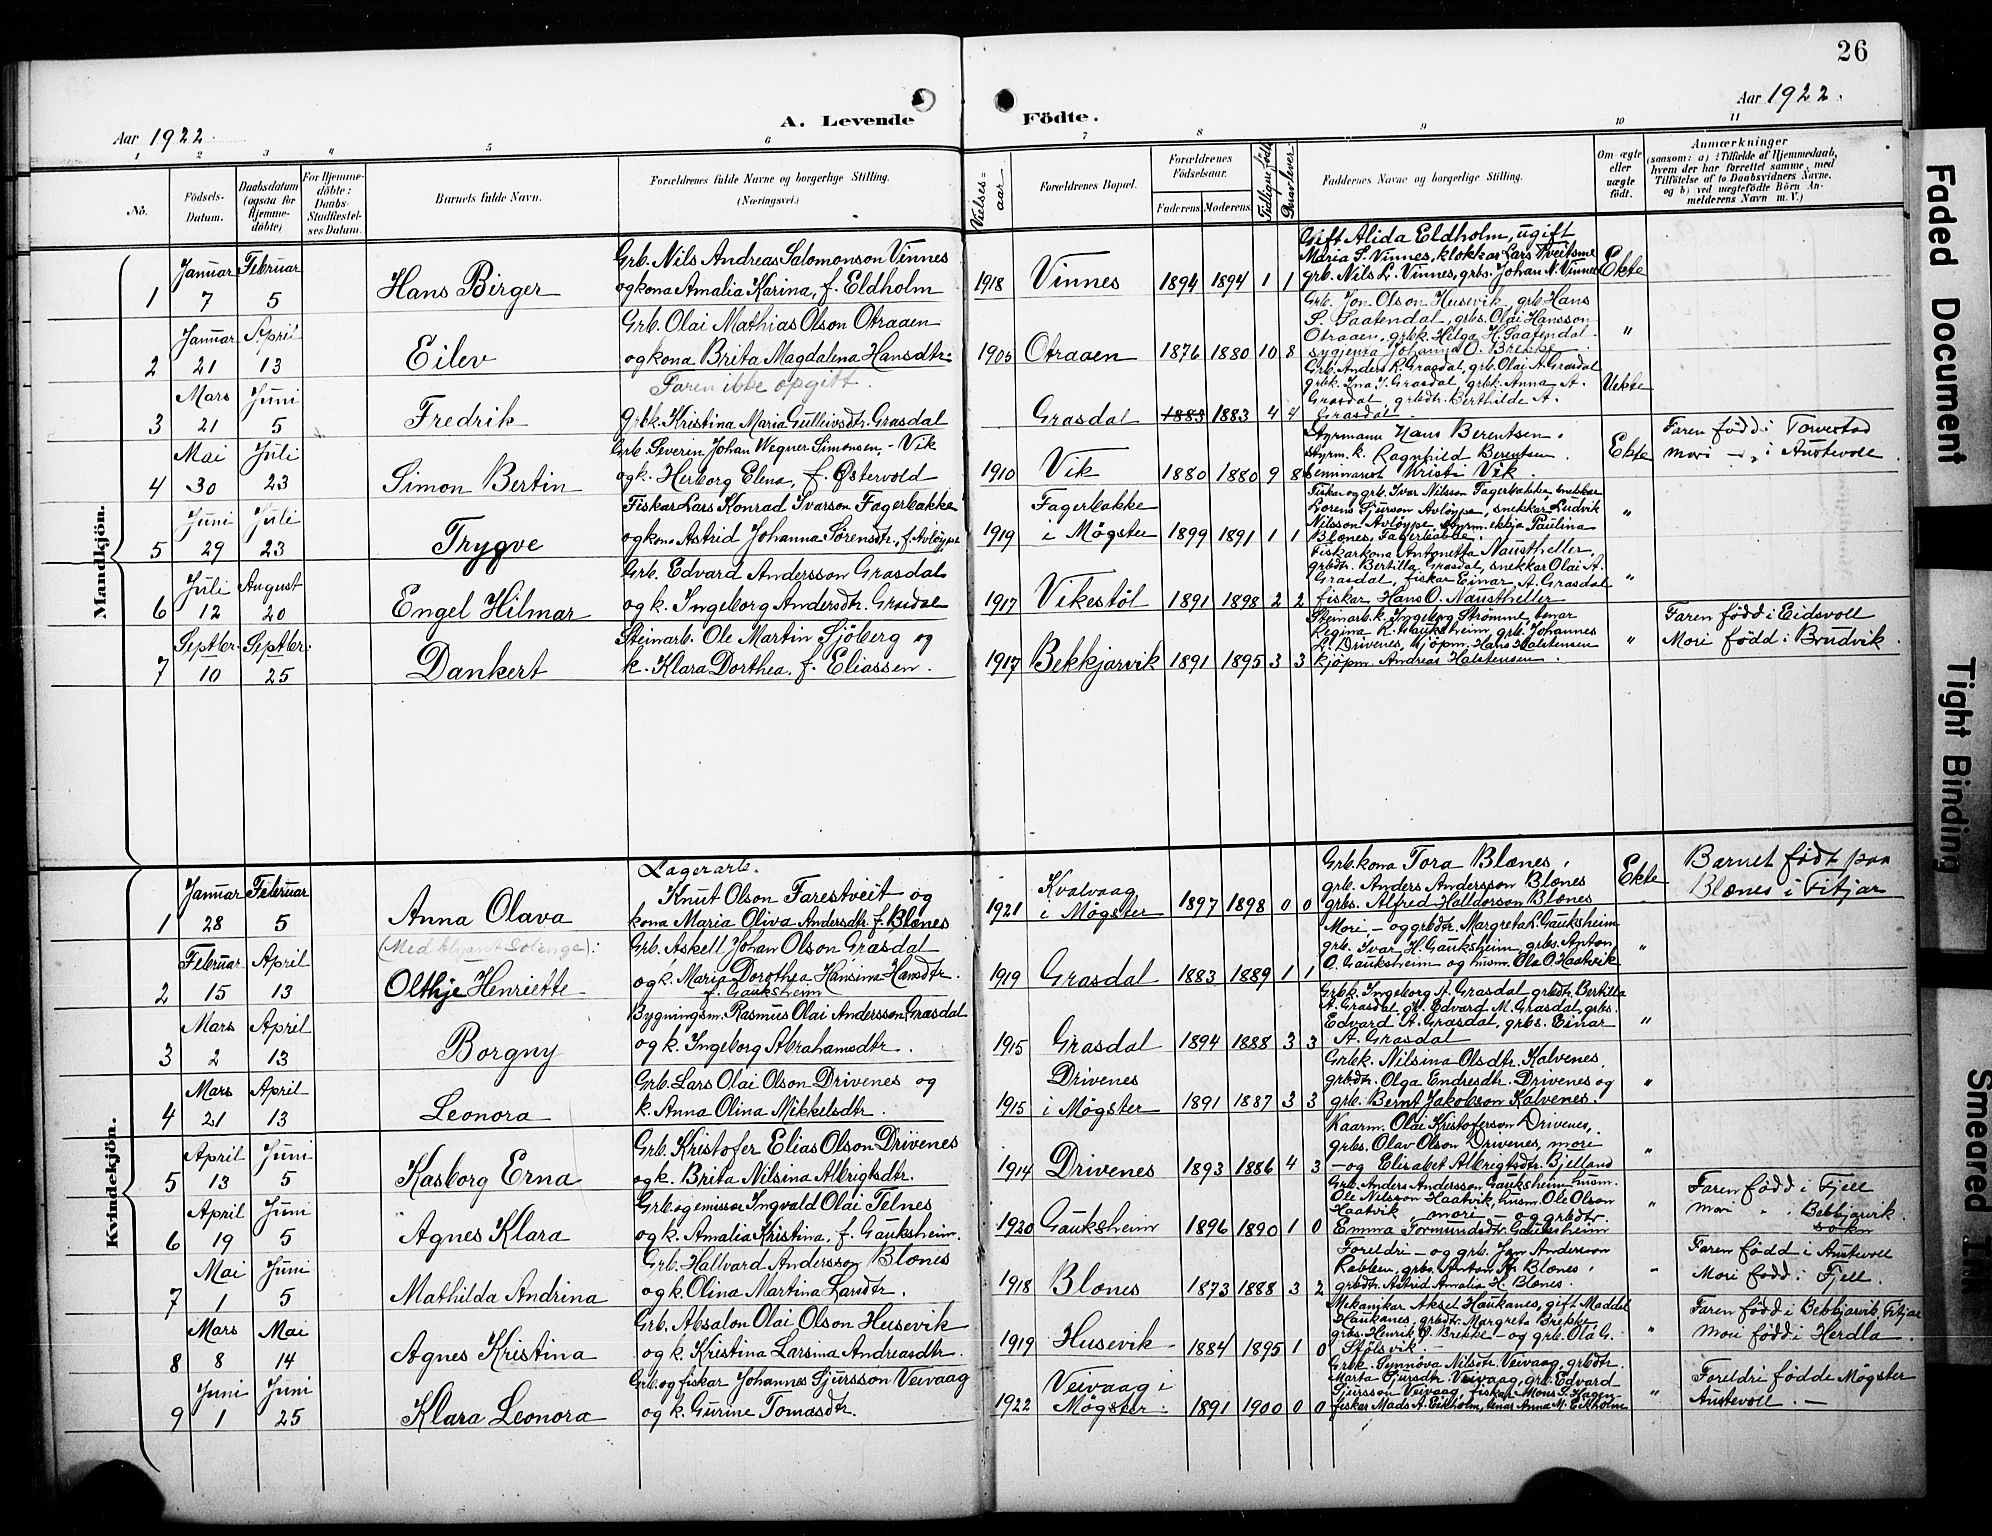 26
Aar 1922.
A. Levende Födte.
Aar 1922.
1 2 3 4 5 6 7 8 9 10 11
No.
Födsels-
Datum.
Daabsdatum
(ogsaa for
Hjemme-
döbte)
For Hjemme-
döbte:
Daabs-
Stadfæstel-
ses Datum.
Barnets fulde Navn.
Forældrenes fulde Navne og borgerlige Stilling.
(Næringsvei.)
Vielses-
aar.
Forældrenes Bopæl.
Forældrenes
Födselsaar.
Faderens. Moderens.
Tidligere födte
Derav lever
Faddernes Navne og borgerlige Stilling.
Om ægte
eller
uægte
födt.
Anmærkninger
(saasom: a) i Tilfælde af Hjemmedaab,
hvem der har forrettet samme, med
Tilföielse af to Daabsvidners Navne.
og b) ved uegtefödte Börn An-
melderens Navn m. V.)
Mandkjön.
1 Januar 7 Februar 5
Hans Birger
Grb. Nils Andreas Salomonson Vinnes
og kona Amalia Karina, f. Eldholm
1918 Vinnes 1894 1894 1 1
Gift Alida Eldholm, ugift
Maria S. Vinnes, klokkar Lars Tveitsme
grb. Nils L. Vinnes, grbs. Johan N. Vinnes
Ekte
2 Januar 21 April 13
Eilev
Grb. Olai Mathias Olson Otraaen
og kona Brita Magdalena Hansdtr.
1905 Otraaen 1876 1880 10 8
Grb. Jon Olson Husevik, grb. Hans
S. Saatendal, grbs. Olai Hansson
Otraaen, grbk. Helga H. Saatendal.
sygjenta Johanna O. Brekke
"
3 Mars 21 Juni 5
Fredrik
Faren ikke opgitt.
Grbk. Kristina Maria Gulleivsdtr. Grasdal
Grasdal 1883 1883 4 4
Grb. Anders K. Grasdal, grb. Olai A. Grasdal
grbk. Ina I. Grasdal, grbk. Anna A.
Grasdal, grbdtr. Berthilde A.
Grasdal
Uekte
4 Mai 30 Juli 23
Simon Bertin
Grb. Severin Johan Wegner Simonsen - Vik
og k. Herborg Elena, f. Østervold
1910 Vik 1880 1880 9 8
Styrmann Hans Berentsen.
styrm. k. Ragnhild Berentsen
Seminarist Kristi Vik.
Ekte
Faren född i Torvestad
mori - „ i Austevoll.
5 Juni 29 Juli 23
Trygve
Fiskar Lars Konrad Ivarson Fagerbakke
og kona Astrid Johanna Sörensdtr. f. Avløype
1919 Fagerbakke
i Møgster 1899 1891 1 1
Fiskar og grb. Ivar Nilsson Fagerbakke, snekkar
Lorens Sjurson Avløype, snekkar Ludvik
Nilsson Avløype, styrm. ekkja Paulina
Blænes, Fagerbakke.
"
6 Juli 12 August 20
Engel Hilmar
Grb. Edvard Andersson Grasdal
og k. Ingeborg Andersdtr. Grasdal
1917 Vikestöl 1891 1898 2 2
Fiskarkona Antonetta Naustheller,
grbdtr. Bertilla Grasdal, snekkar Olai A.
Grasdal, fiskar Einar A. Grasdal
fiskar Hans O. Naustheller
"
7 Septbr. 10 Septbr. 25
Dankert
Steinarb. Ole Martin Sjöberg og
k. Klara Dorthea, f. Eliassen.
1917 Bekkjarvik 1891 1895 3 3
Steinarb.k. Ingeborg Strömme, tenar
Regina K. Hauksheim, grb. Johannes
L. Drivenes, kjöpm. Hans Halstensen
kjöpm. Andreas Halstensen.
"
Faren född i Eidsvoll
Mori född i Brudvik.
Kvindekjön.
1 Januar 28 Februar 5
Anna Olava
Lagerarb.
Knut Olson Farestveit og
kona Maria Oliva Andersdtr. f. Blænes
1921 Kvalvaag
i Møgster 1897 1898 0 0
Grb.kona Tora Blænes,
grb. Anders Andersson Blænes
grbs. Alfred Halldorson Blænes
Ekte
Barnet födt paa
Blænes i Fitjar
2 Februar 15 April 13
(Med blyant Solenge):
Olthje Henriette
Grb. Askell Johan Olson Grasdal
og k. Maria Dorothea Hansina Hansdtr.
f. Gauksheim
1919 Grasdal 1883 1889 1 1
Mori, - og grbdtr. Margreta H. Gauksheim
grb. Ivar H. Gauksheim, grbs. Anton
O. Gauksheim og husm. Ola O. Haatvik
"
3 Mars 2 April 13
Borgny
Bygningsm. Rasmus Olai Andersson Grasdal
og k. Ingeborg Abrahamsdtr.
1915 Grasdal 1894 1888 3 3
Grbk. Ingeborg A. Grasdal grbdtr. Bertilla
A. Grasdal, gk. Edvard M. Grasdal, grbs.
Edvard A. Grasdal, grbs. Einar
A. Grasdal
"
4 Mars 21 April 13
Leonora
Grb. Lars Olai Olson Drivenes og
k. Anna Olina Mikkelsdtr.
1915 Drivenes
i Møgster 1891 1887 3 3
Grbk. Nilsina Olsdtr. Kalvenes,
grbdtr. Olga Endresdtr. Drivenes og
grb. Bernt Jakobson Kalvenes.
"
5 April 13 Juni 5
Kasborg Erna
Grb. Kristofer Elias Olson Drivenes
og k. Brita Nilsina Albrigtsdtr.
1914 Drivenes 1893 1886 4 3
Kaarm. Olai Kristoferson Drivenes,
grbs. Olav Olson Drivenes, mori
- og Elisabet Albrigtsdtr. Bjelland
"
6 April 19 Juni 5
Agnes Klara
Grb. og emissær Ingvald Olai Telnes
og k. Amalia Kristina, f. Gauksheim.
1920 Gauksheim 1896 1890 1 0
Grb. Anders Andersson Gauksheim, husm.
Ole Nilsson Haatvik, husm. Ole Olson
Haatvik - mori - og grbdtr.
Emma Tormundsdtr. Gauksheim
"
Faren född i Fjell
mori " . Bekkjarvik
sokn
7 Mai 1 Juni 5
Mathilda Andrina
Grb. Hallvard Andersson Blænes
og k. Olina Martina Larsdtr.
1918 Blænes 1873 1888 3 2
Foreldri - og grb. Jam Anderson
Rabben, grbs. Anton A. Blænes,
grbdtr. Astrid Amalia H. Blænes.
"
Faren född i Austevoll
Mori född i Fjell.
8 Mars 8 Mai 14
Agnes Kristina
Grb. Absalon Olai Olson Husevik
og k. Kristina Larsina Andreasdtr.
1919 Husevik 1884 1895 1 0
Mekanikar Aksel Haukanes, gift Maddel
Haukanes, grbdtr. Margreta Brekke
grbs. Henrik O. Brekke - og grb. Ola G.
Stølsvik -
"
Faren född i Bekkjarvik, Fitjar
mori född i Herdla.
9 Juni 1 Juni 25
Klara Leonora
Grb. og fiskar Johannes Sjursson Veivaag
og k. Gurine Tomasdtr.
1922 Veivaag i
Møgster. 1891 1900 0 0
Grbk. Synnöva Nilsdtr. Veivaag, grbdtr.
Marta Sjursdtr. Veivaag, grb. Edvard
Sjursson Veivaag, fiskar Mons S. Hagen-
fiskar Mads A. Eikholm, tenar Anna M. Eikholm
"
Foreldri födde Møgster
Austevoll. -
Faded Document
Tight Binding
Smeared Ink